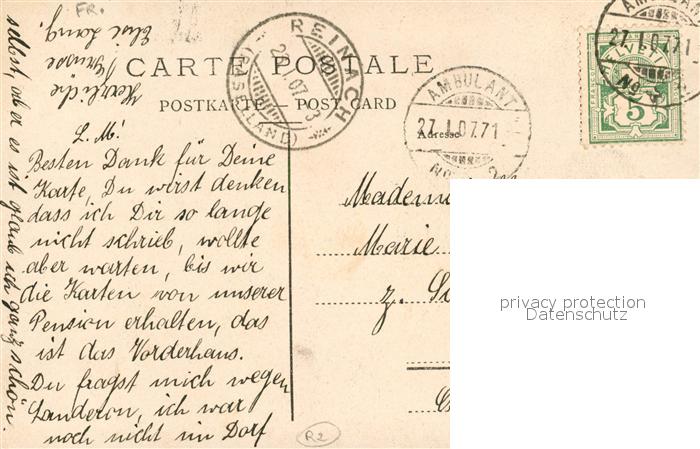 FR.
CARTE POSTALE
POSTKARTE — POST CARD
REINACH
(BASELLAND)
AMBULANT
27.I.07.71
AMBULANT
27.I.07.71
No
5
Adresse
L. M!
Besten Dank für Deine
Karte, Du wirst denken
dass ich Dir so lange
nicht schrieb, wollte
aber warten, bis wir
die Karten von unserer
Pension erhalten, das
ist das Vorderhaus.
Du fragst mich wegen
Landeron, ich war
noch nicht im Dorf
selbst, aber es ist glaub ich ganz schön.
Herzliche
Grüsse
Elsie
Mademoi
Marie
z.
privacy protection
Datenschutz
R2